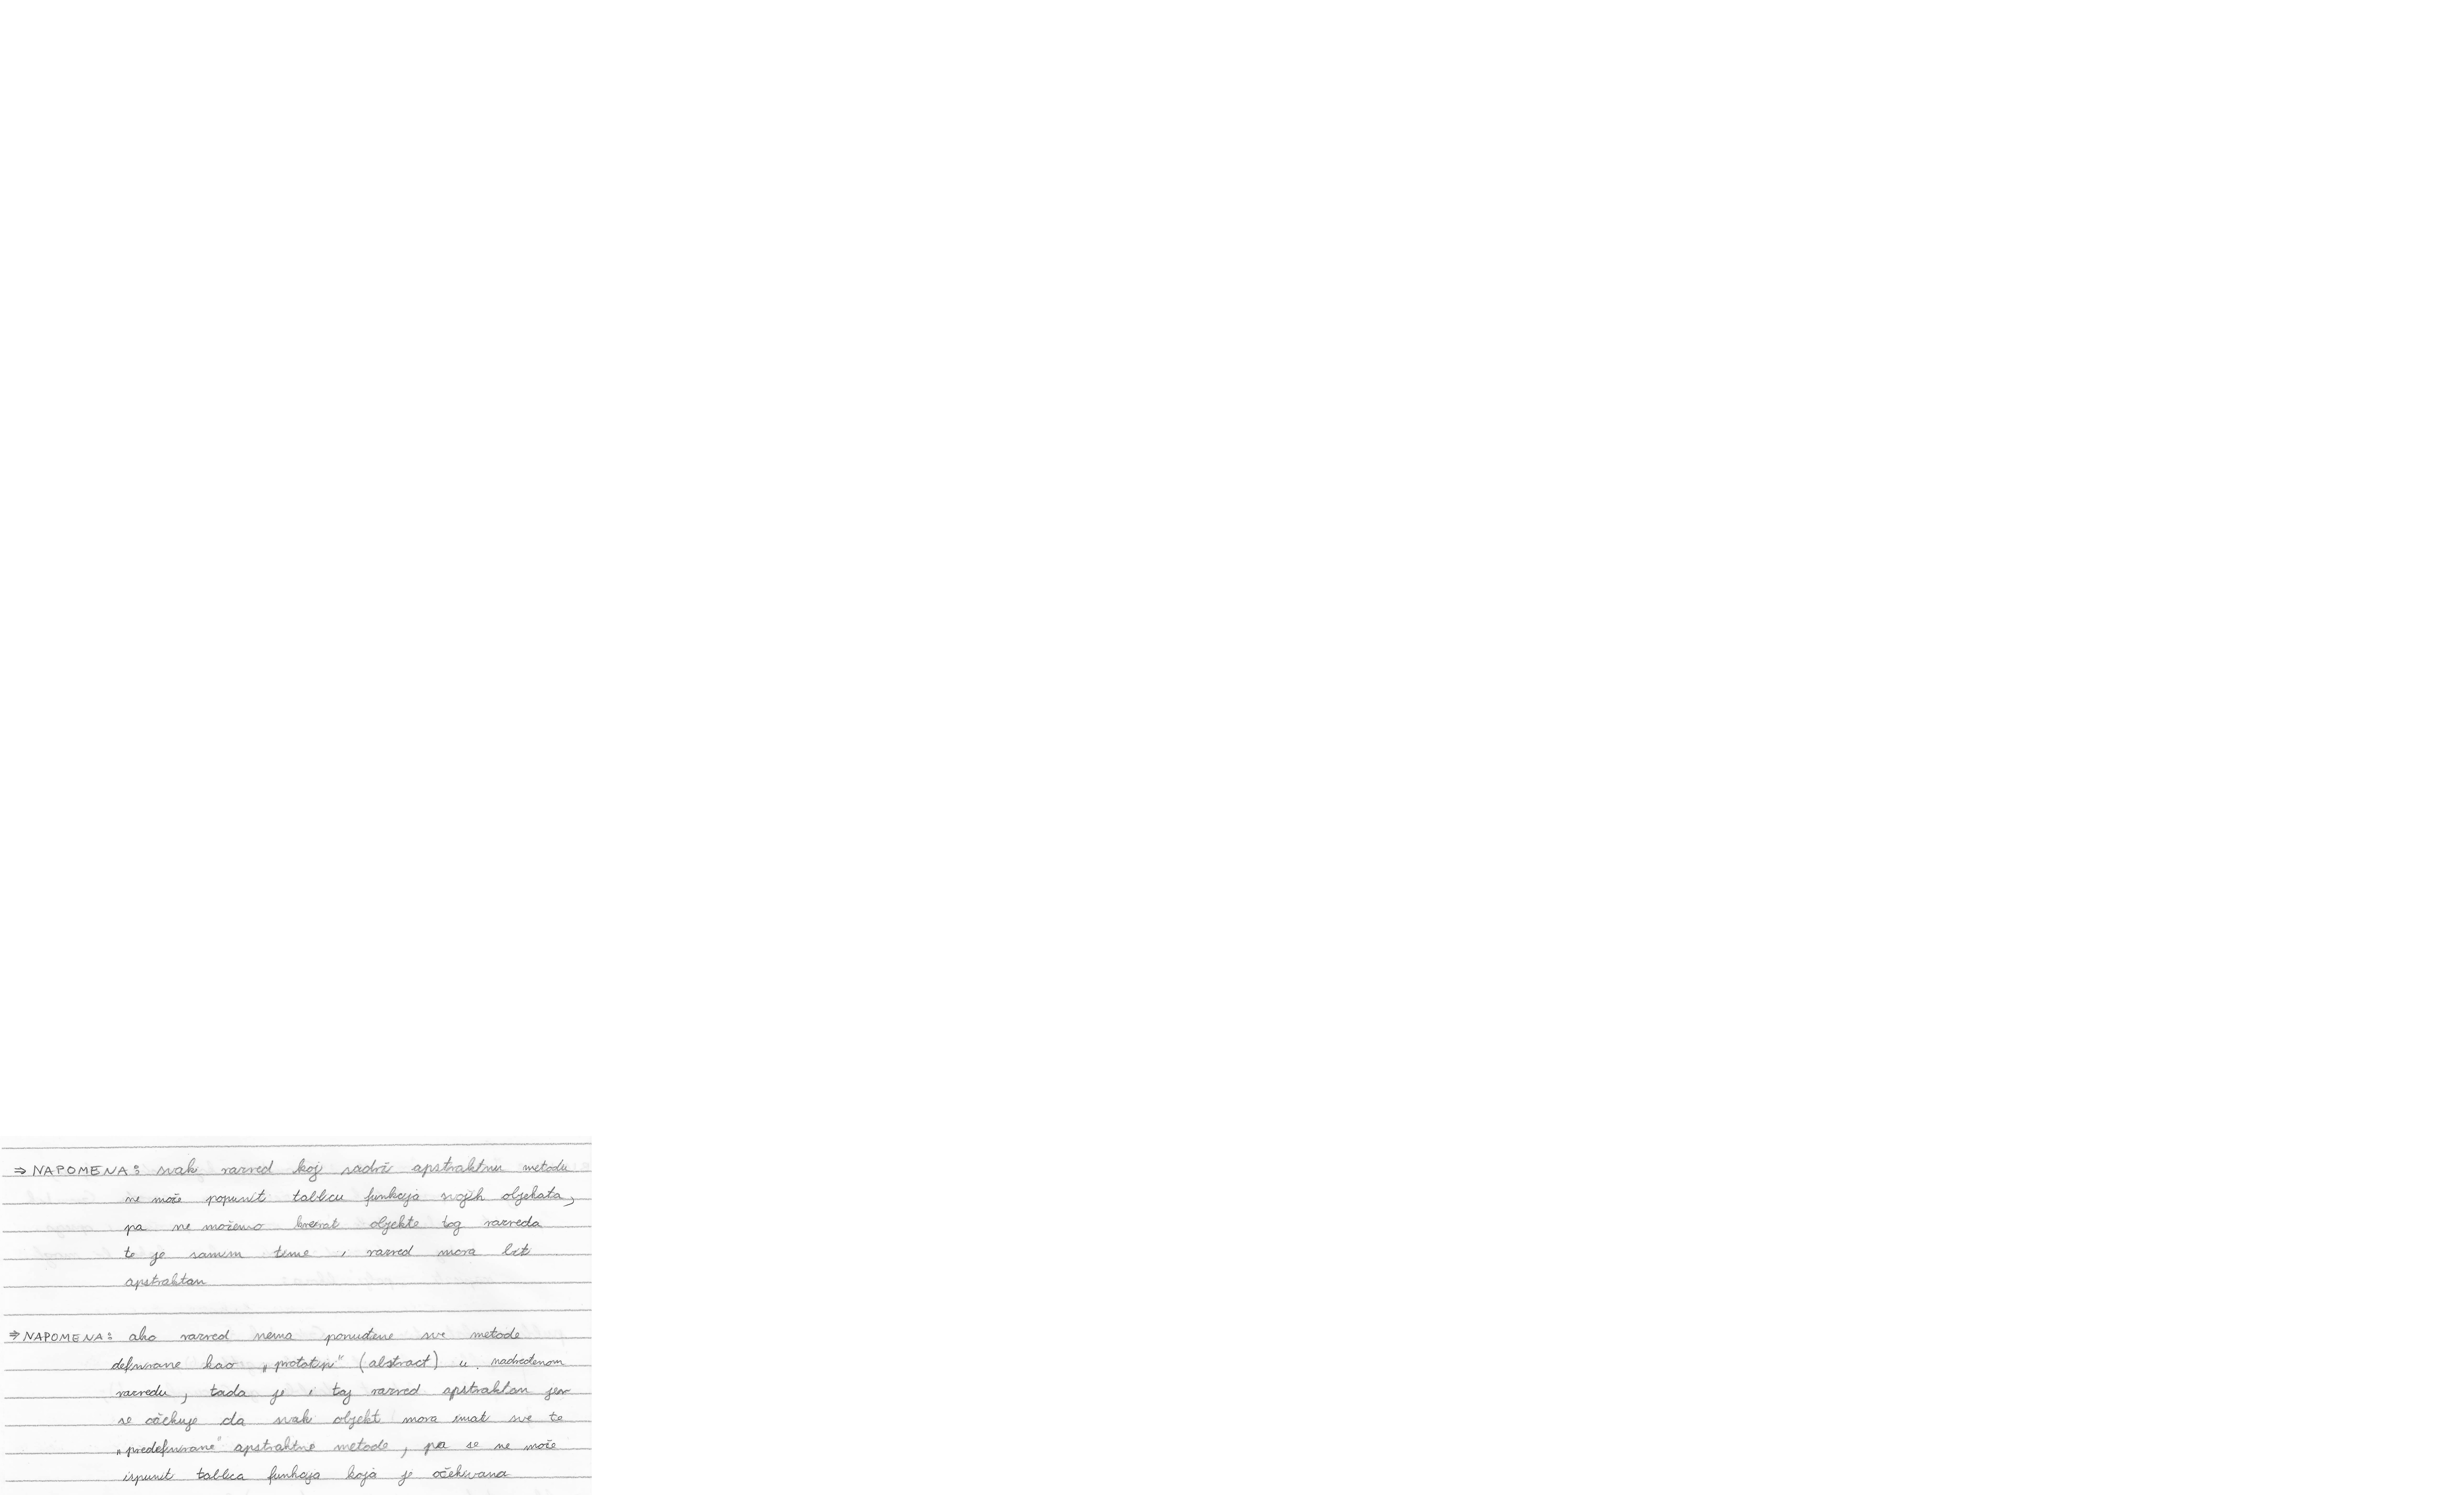 ⇒ NAPOMENA: svaki razred koji sadrži apstraktnu metodu
ne može popuniti tablicu funkcija svojih objekata,
pa ne možemo kreirati objekte tog razreda
te je samim time i razred mora biti
apstraktan
⇒ NAPOMENA: ako razred nema ponuđene sve metode
definirane kao „prototip" (abstract) u nadređenom
razredu, tada je i taj razred apstraktan jer
se očekuje da svaki objekt mora imati sve te
„predefinirane" apstraktne metode, pa se ne može
ispuniti tablica funkcija koja je očekivana